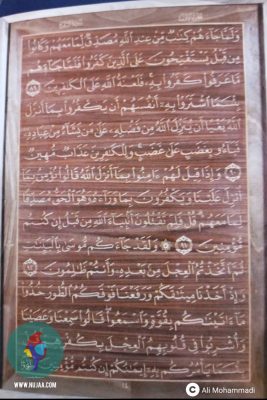 وَلَمَّا جَآءَهُمْ كِتَٰبٌ مِّنْ عِندِ ٱللَّهِ مُصَدِّقٌ لِّمَا مَعَهُمْ وَكَانُوا۟
مِن قَبْلُ يَسْتَفْتِحُونَ عَلَى ٱلَّذِينَ كَفَرُوا۟ فَلَمَّا جَآءَهُم
مَّا عَرَفُوا۟ كَفَرُوا۟ بِهِۦ فَلَعْنَةُ ٱللَّهِ عَلَى ٱلْكَٰفِرِينَ ٨٩
بِئْسَمَا ٱشْتَرَوْا۟ بِهِۦٓ أَنفُسَهُمْ أَن يَكْفُرُوا۟ بِمَآ أَنزَلَ
ٱللَّهُ بَغْيًا أَن يُنَزِّلَ ٱللَّهُ مِن فَضْلِهِۦ عَلَىٰ مَن يَشَآءُ مِنْ عِبَادِهِۦ
فَبَآءُو بِغَضَبٍ عَلَىٰ غَضَبٍ وَلِلْكَٰفِرِينَ عَذَابٌ مُّهِينٌ
٩٠ وَإِذَا قِيلَ لَهُمْ ءَامِنُوا۟ بِمَآ أَنزَلَ ٱللَّهُ قَالُوا۟ نُؤْمِنُ بِمَآ
أُنزِلَ عَلَيْنَا وَيَكْفُرُونَ بِمَا وَرَآءَهُۥ وَهُوَ ٱلْحَقُّ مُصَدِّقًا
لِّمَا مَعَهُمْ قُلْ فَلِمَ تَقْتُلُونَ أَنۢبِيَآءَ ٱللَّهِ مِن قَبْلُ إِن كُنتُم
مُّؤْمِنِينَ ٩١ وَلَقَدْ جَآءَكُم مُّوسَىٰ بِٱلْبَيِّنَٰتِ
ثُمَّ ٱتَّخَذْتُمُ ٱلْعِجْلَ مِنۢ بَعْدِهِۦ وَأَنتُمْ ظَٰلِمُونَ ٩٢
وَإِذْ أَخَذْنَا مِيثَٰقَكُمْ وَرَفَعْنَا فَوْقَكُمُ ٱلطُّورَ خُذُوا۟
مَآ ءَاتَيْنَٰكُم بِقُوَّةٍ وَٱسْمَعُوا۟ قَالُوا۟ سَمِعْنَا وَعَصَيْنَا
وَأُشْرِبُوا۟ فِى قُلُوبِهِمُ ٱلْعِجْلَ بِكُفْرِهِمْ قُلْ
بِئْسَمَا يَأْمُرُكُم بِهِۦٓ إِيمَٰنُكُمْ إِن كُنتُم مُّؤْمِنِينَ
WWW.NIJAA.COM
© Ali Mohammadi